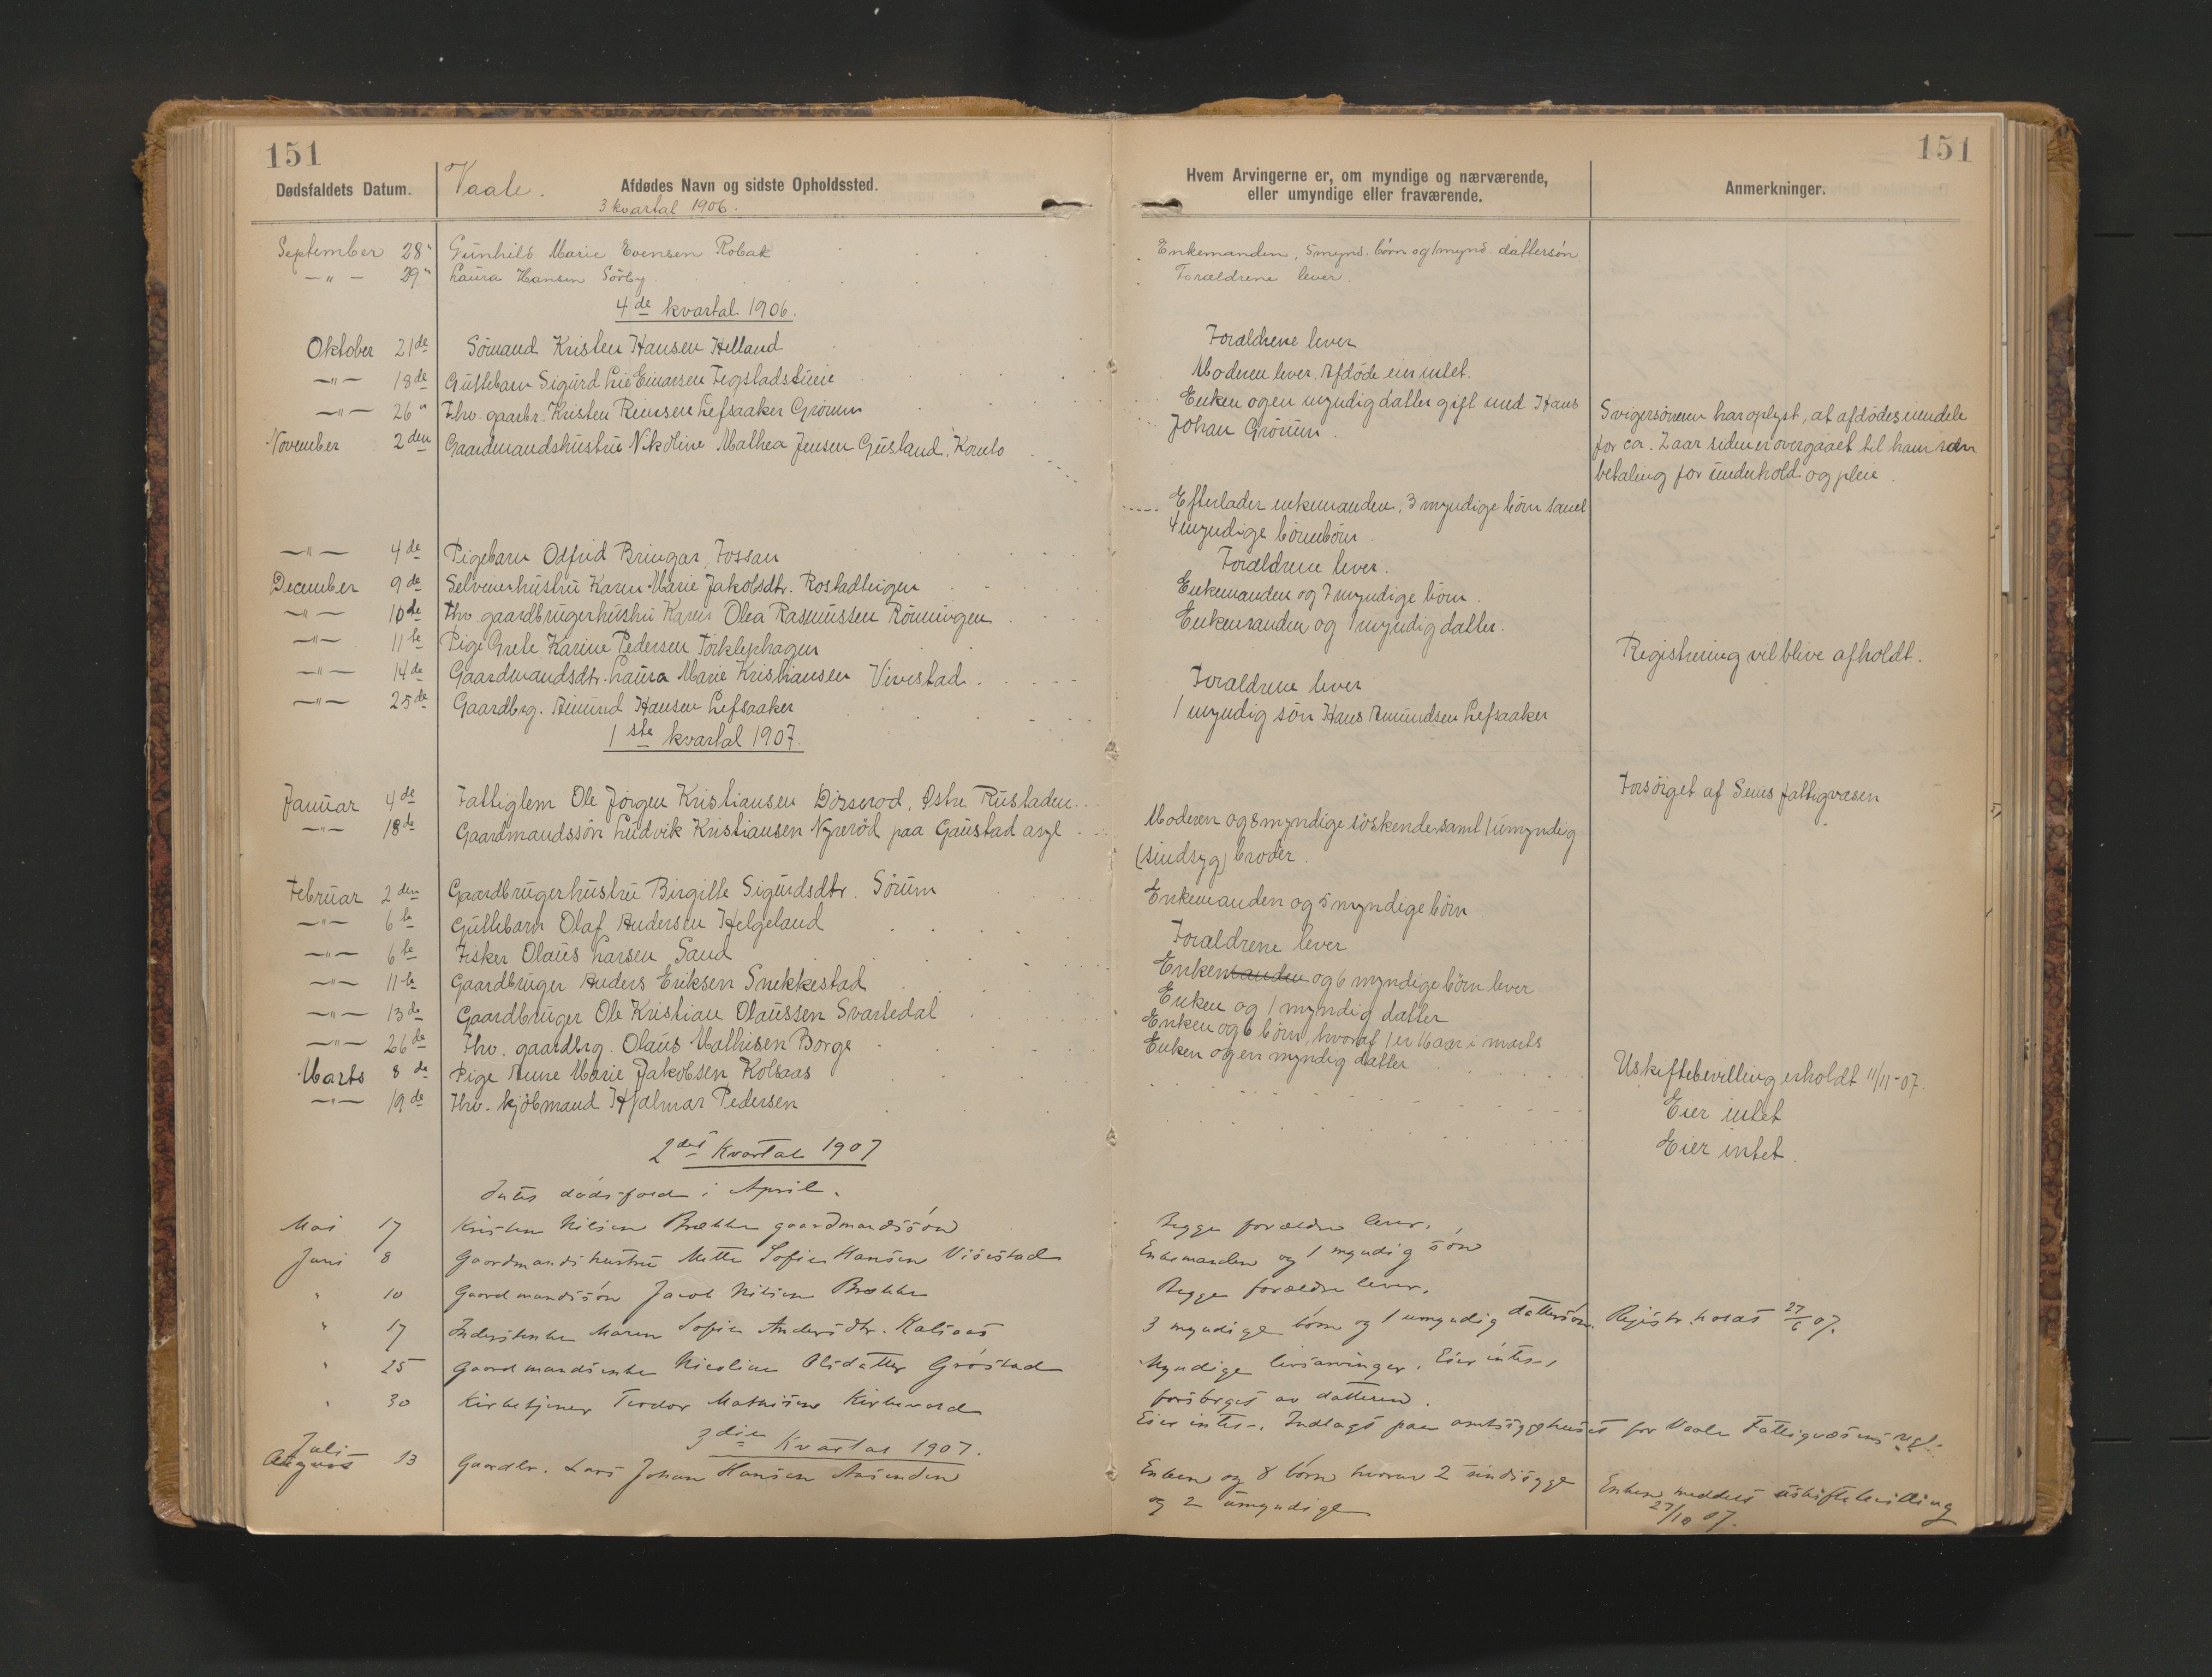 151
151
Dødsfaldets Datum.
Vaale.
Afdødes Navn og sidste Opholdssted.
3 kvartal 1906.
Hvem Arvingerne er, om myndige og nærværende,
eller umyndige eller fraværende.
Anmerkninger.
September 28" Gunhild Marie Evensen Robak Enkemanden, 5 mynd. børn og 1 mynd. dattersøn.
—"— 29" Laura Hansen Sörby Forældrene lever.
4de kvartal 1906.
Oktober 21de Sømand Kristen Hansen Helland Forældrene lever
—"— 18de Guttebarn Sigurd Lie Einarsen Moderen lever. Afdøde eier intet.
—"— 26" Fhv. gaarbr. Kristen Lefsaaker Grørum Enken og en myndig datter gift med Hans
Johan Grørum.
Svigersønnen har oplyst, at afdødes eiendele
for ca. 2 aar siden er overgaaet til ham som
betaling for underhold og pleie.
November 2den Gaardmandshustru Nikoline Mathea Jensen Gusland,
Efterlader enkemanden, 3 myndige børn samt
4 myndige børnebørn.
—"— 4de Pigebarn Odfrid Bringar, Fossan Forældrene lever.
December 9de Selveierhustru Karen Marie Jakobsdtr. Rostadteigen Enkemanden og 7 myndige børn.
—"— 10de Fhv. gaardbrugerhustru Karen Olea Rasmussen Rönningen Enkemanden og 1 myndig datter.
—"— 11te Pige Grete Karine Pedersen Torklephagen Registrering vil blive afholdt.
—"— 14de Gaardmandsdtr. Laura Marie Kristiansen Vivestad Forældrene lever
—"— 25de Gaardbrg. Amund Hansen Lefsaaker 1 myndig søn Hans Amundsen Lefsaaker
1ste kvartal 1907.
Januar 4de Fattiglem Ole Jørgen Kristiansen Østre Rustaden Forsørget af Sems fattigvæsen
—"— 18de Gaardmandssøn Ludvik Kristiansen Nyrerød paa Gaustad asyl Moderen og 8 myndige söskende samt 1 umyndig
(sindsyg) broder.
Februar 2den Gaardbrugerhustru Birgitte Sigurdsdtr. Sørum Enkemanden og 5 myndige børn
—"— 6te Guttebarn Olaf Andersen Helgeland Forældrene lever
—"— 6te Fisker Olaus Larsen Sand Enkemanden og 6 myndige børn lever
—"— 11te Gaardbruger Anders Eriksen Snekkestad Enken og 1 myndig datter
—"— 13de Gaardbruger Ole Kristian Olaussen Svartedal Enken og 6 børn, hvoraf 1 er 16 aar i marts
—"— 26de Fhv. gaardbrg. Olaus Mathisen Borge Enken og en myndig datter Uskiftebevilling erholdt 11/11-07.
Marts 8de Pige Anne Marie Jakobsen Kolsaas Eier intet
—"— 19de Fhv. kjøbmand Hjalmar Pedersen Eier intet.
2det Kvartal 1907
Intet dødsfald i April.
Mai 17 Kristen Nilsen Brække gaardmandssøn Begge forældre lever.
Juni 8 Gaardmandshustru Mette Sofie Hansen Vivestad Enkemanden og 1 myndig søn
" 10 Gaardmandssøn Jacob Nilsen Brække Begge forældre lever.
" 17 Inderstenke Maren Sofie Andersdtr. Kolsaas 3 myndige børn og 1 umyndig dattersøn. Registr. holdt 27/6 07.
" 25 Gaardmandsenke Nicoline Olsdatter Grøstad Myndige livsarvinger. Eier intet,
forsørget av datteren.
" 30 Kirketjener Teodor Mathisen Eier intet. Indlagt paa amtssygehuset for Vaale Fattigvæsens regl.
3die Kvartal 1907.
Juli —
August 13 Gaardbr. Lars Johan Hansen Aasenden Enken og 8 børn hvorav 2 sindssyge
og 2 umyndige
Enken meddelt uskiftebevilling
27/10 07.